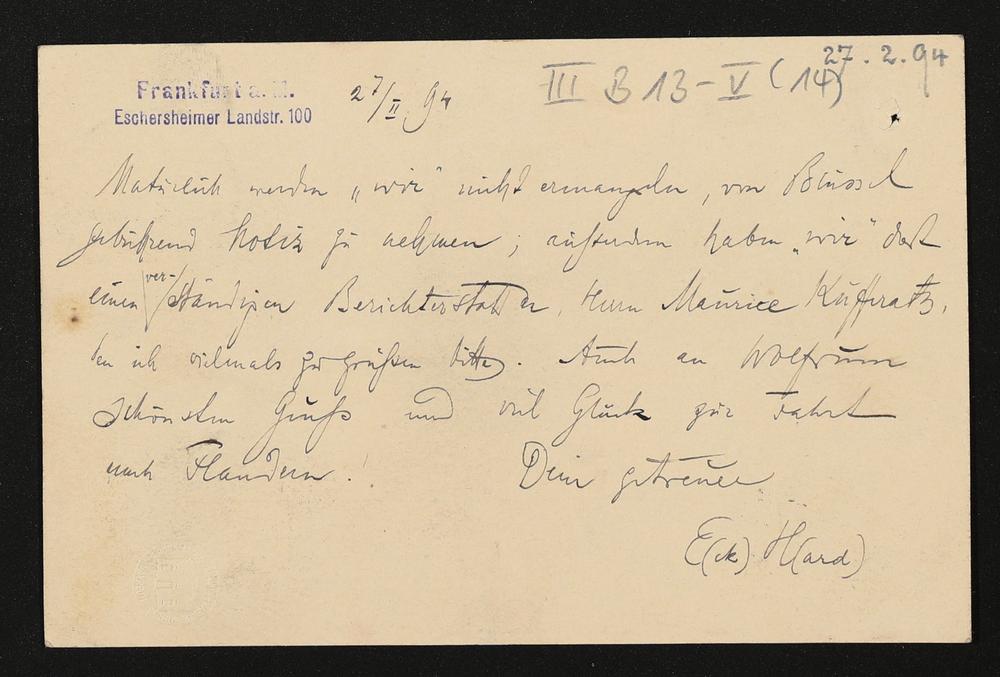 27. 2. 94
III B 13-V (14)
Frankfurt a. M.
Eschersheimer Landstr. 100
27/II. 94
Natürlich werden „wir“ nicht ermangeln, von Brüssel
gebührend Notiz zu nehmen; außerdem haben „wir“ dort
einen ver-/ständigen Berichterstatter, Herrn Maurice Kufferath,
den ich vielmals zu grüßen bitte. Auch an Wolfrum
schönsten Gruß und viel Glück zur Fahrt
nach Flandern!
Dein getreuer
E(ck) H(ard)